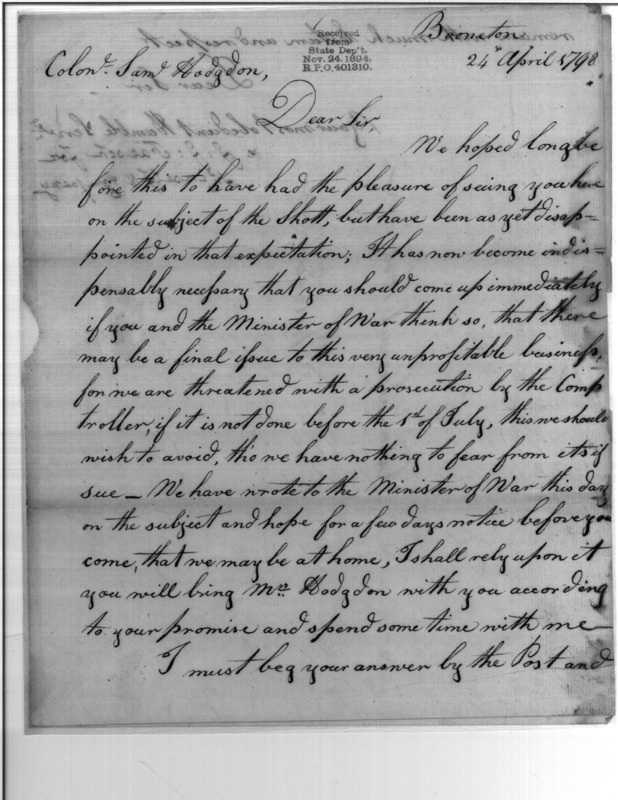 Bronxton
24th April 1798
Received
from
State Dep't.
Nov. 24. 1894.
R.P.O. 401310.
Colonl. Saml. Hodgdon,
Dear Sir,
We hoped long be
fore this to have had the pleasure of seeing you here
on the subject of the Shott, but have been as yet disap=
pointed in that expectation; It has now become indis=
pensably necessary that you should come up immediately
if you and the Minister of War think so, that there
may be a final issue to this very unprofitable business,
for we are threatened with a prosecution by the Comp
troller, if it is not done before the 1st of July, this we should
wish to avoid, tho we have nothing to fear from its is
sue _ We have wrote to the Minister of War this day
on the subject and hope for a few days notice before you
come, that we may be at home, I shall rely upon it
you will bring Mrs. Hodgdon with you according
to your promise and spend some time with me _
I must beg your answer by the Post and